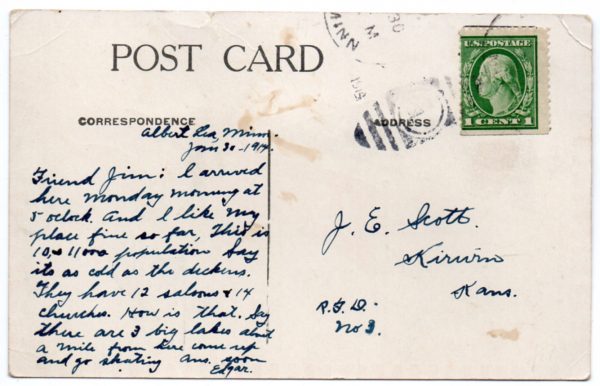 POST CARD
MINN
30
M
191
U.S. POSTAGE
1 CENT 1
CORRESPONDENCE
ADDRESS
Albert Lea, Minn.
Jan 30 - 1914.
Friend Jim: I arrived
here Monday morning at
5 oclock. And I like my
place fine so far, This is
10, & 11000 population Say
its as cold as the deckens.
They have 12 saloons & 14
churches. How is that. Say
there are 3 big lakes about
a mile from here come up
and go skating ans. soon
Edgar.
J. E. Scott.
Kirwin
Kans.
R.F.D.
No 3.